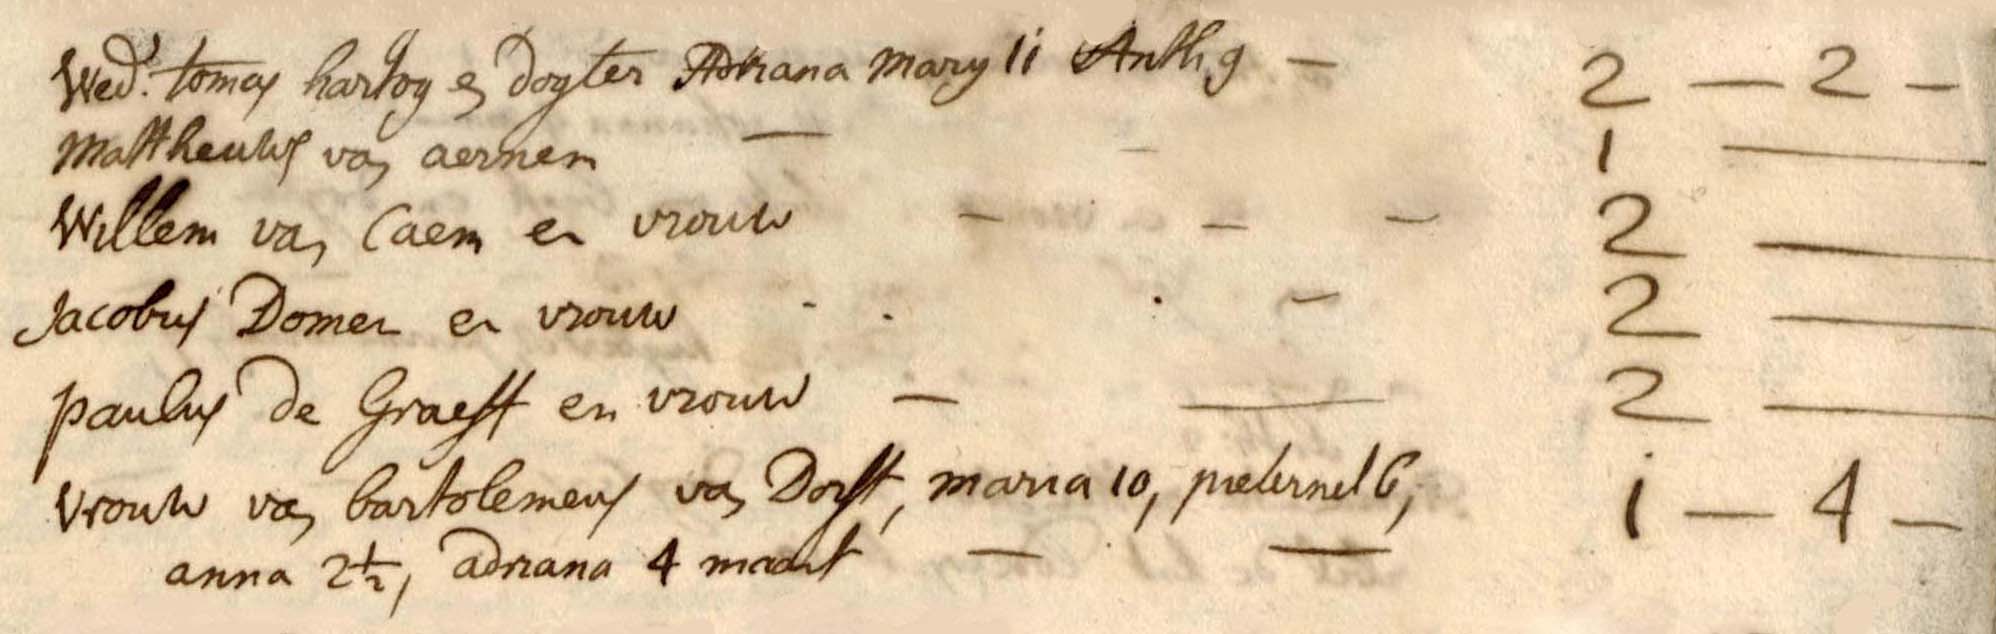 Wed: tomas hartog en dogter Adriana mary 11 Anth 9 — 2 — 2 —
Mattheuws van aernem — 1 —
Willem van Caem en vrouw — — — 2 —
Jacobus Domen en vrouw - . . — 2 —
paulus de Graeff en vrouw — — 2 —
vrouw van bartolemeus van Dorst, maria 10, peeternel 6, 1 — 4 —
anna 2½, adriana 4 maant — —